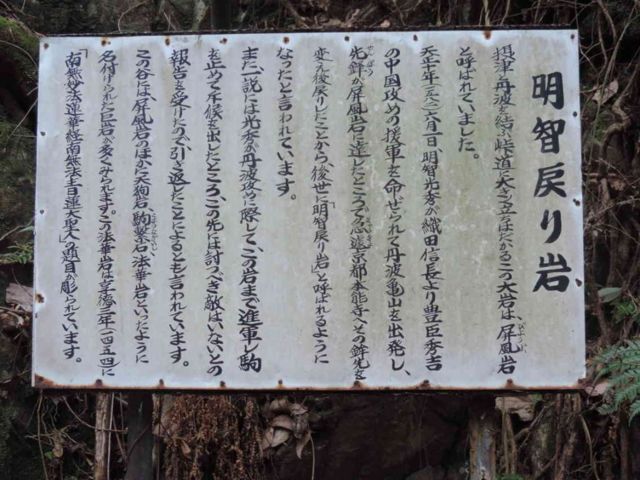 明智戻り岩
摂津丹波を結ぶ峠道に大きく立ちはだかるこの大岩は、屏風岩
と呼ばれていました。
天正十年(一五八二)六月一日、明智光秀が織田信長より豊臣秀吉
の中国攻めの援軍を命ぜられて丹波亀山を出発し、
先鉾が屏風岩に達したところで急遽京都本能寺へとの鉾先を
変え後戻りしたことから、後世に「明智戻り岩」と呼ばれるように
なったと言われています。
また一説には光秀が丹波攻めに際して、この岩まで進軍し駒
を止めて斥候を出したところ、この先には討つべき敵はいないとの
報告を受けたので、引き返したことによるとも言われています。
この谷には、屏風岩のほかに天狗岩、駒繋石、法華岩といったように
名付けられた巨岩が多くみられます。この法華岩は享徳三年(一四五四)に
「南無妙法蓮華経南無法主日蓮大聖人」の題目が彫られています。